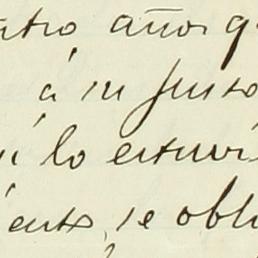 ntro años q
á su justo
i lo estuvi
ento, se obli